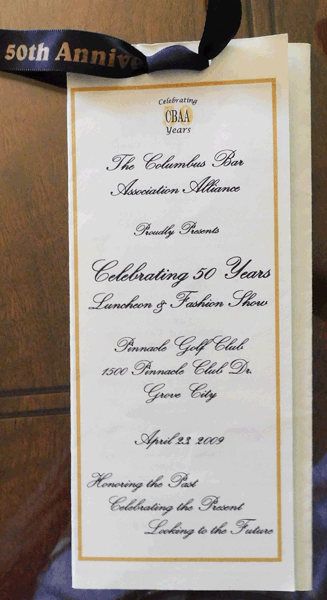 50th Annive
Celebrating
50
CBAA
Years
The Columbus Bar
Association Alliance
Proudly Presents
Celebrating 50 Years
Luncheon & Fashion Show
Pinnacle Golf Club
1500 Pinnacle Club Dr.
Grove City
April 23, 2009
Honoring the Past
Celebrating the Present
Looking to the Future